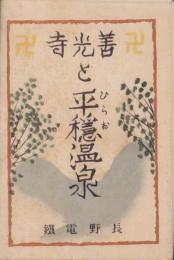 卍 善光寺 卍
と平穏温泉
ひらお
長野電鐵